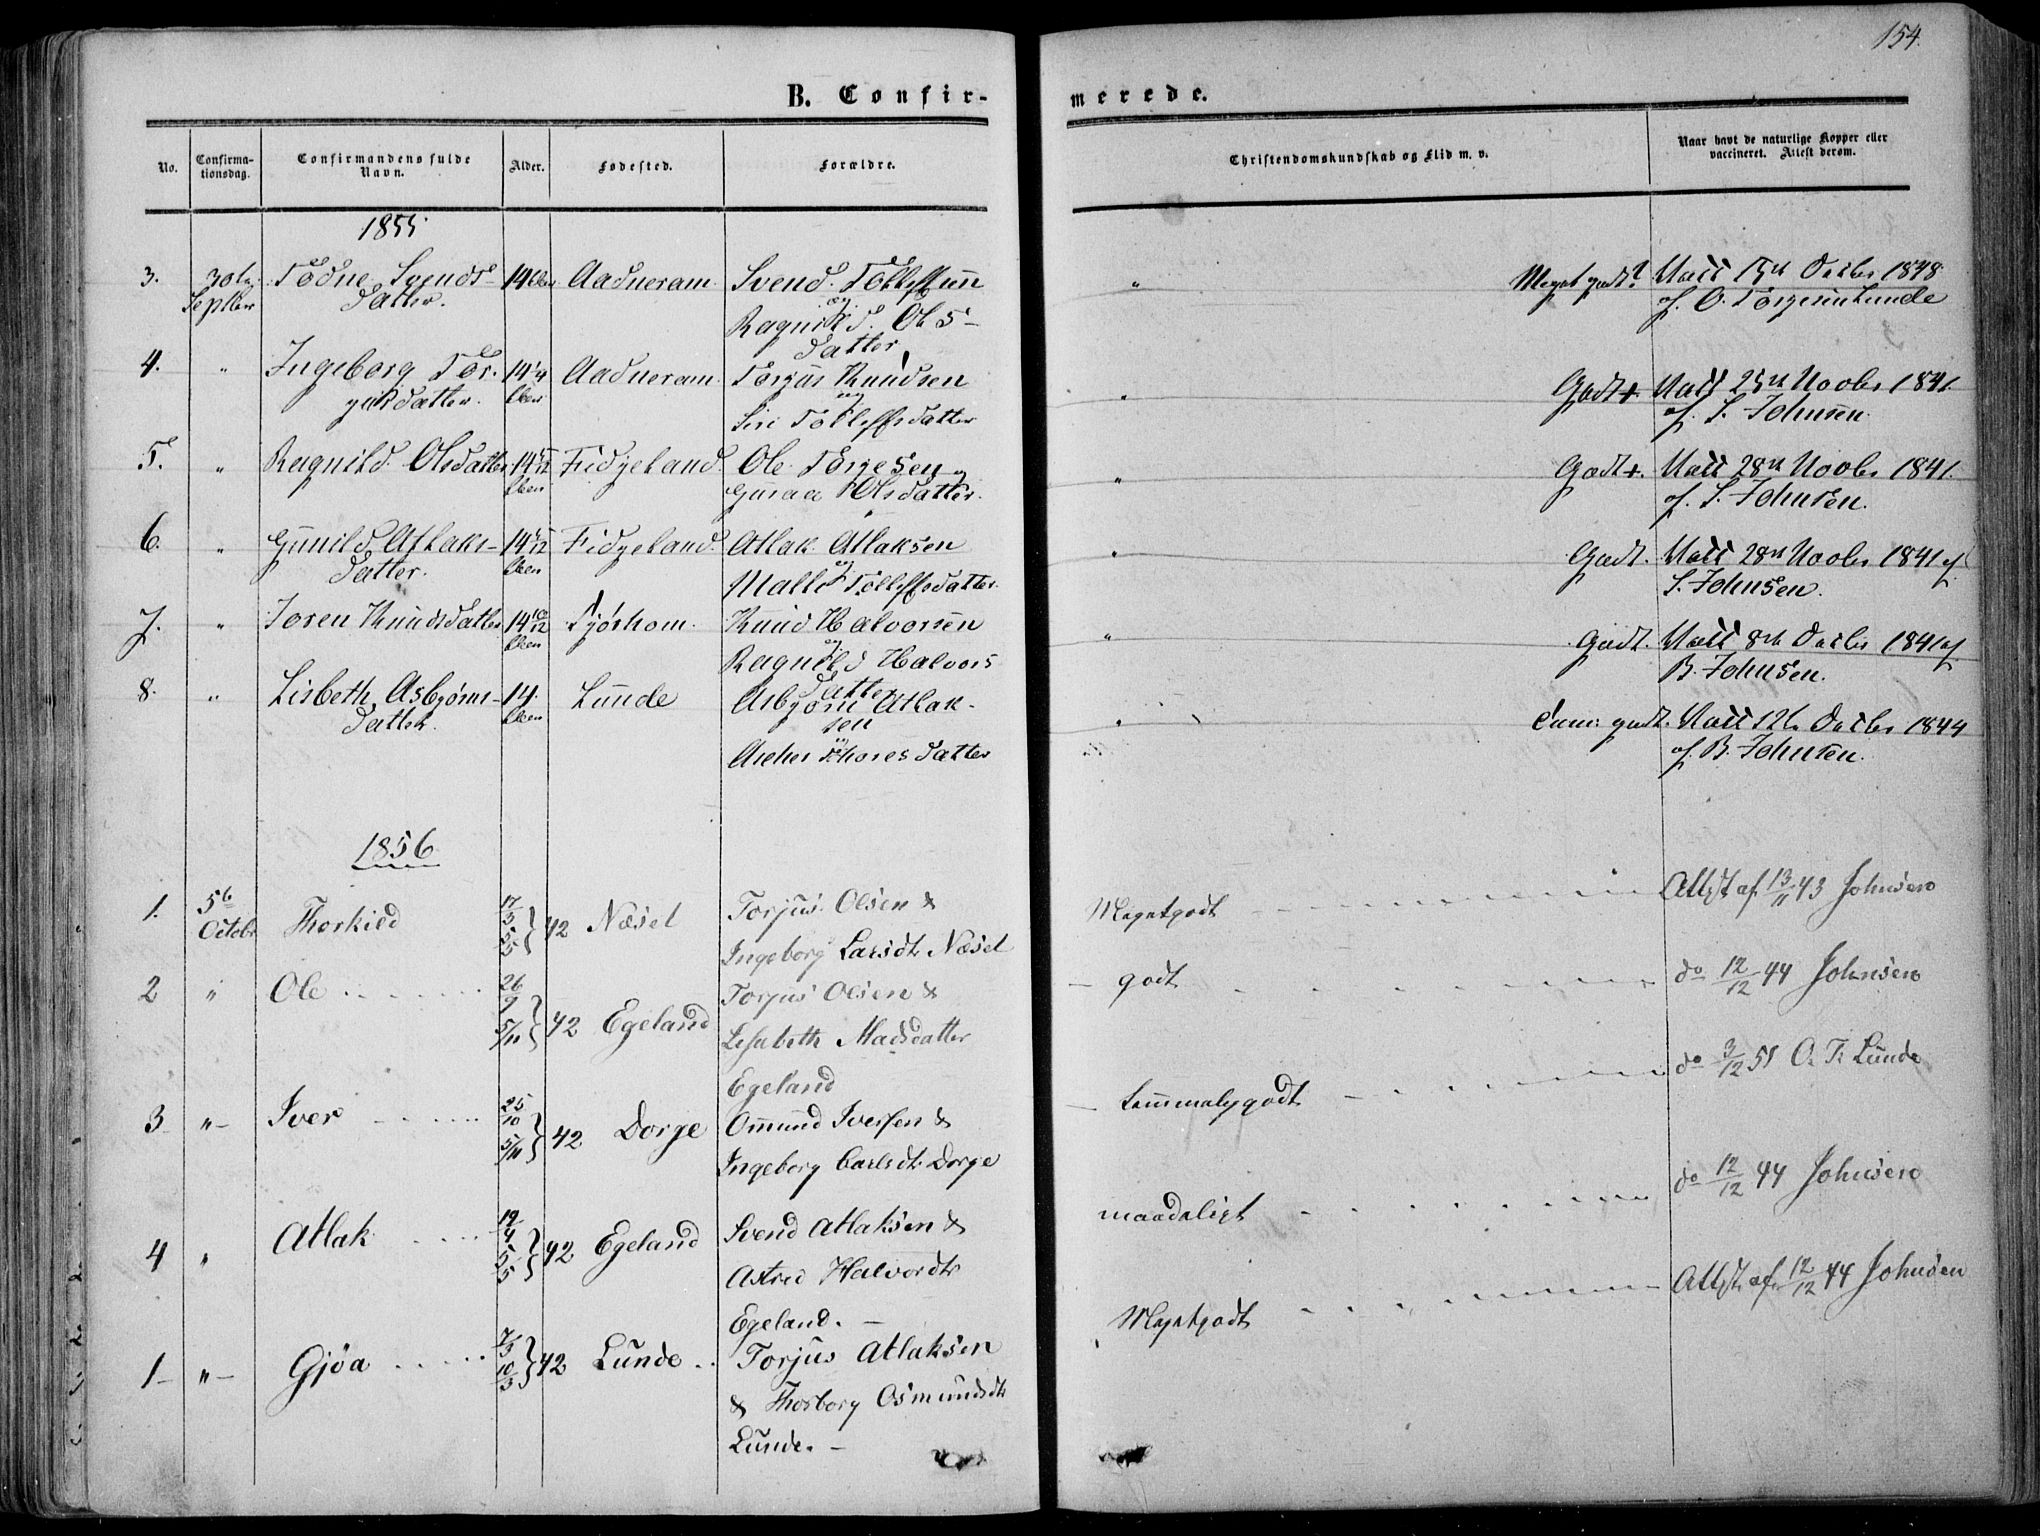 154.
B. Confir-
merede.
No.
Confirma-
tionsdag.
Confirmandens fulde
Navn.
Alder.
Fødested.
Forældre.
Christendomskundskab og Flid m. v.
Naar havt de naturlige Kopper eller
vaccineret. Attest derom.
1855
3. 30te Todne Svends- 14 Aadneram Svend Tollefsen Meget godt Vacc 15de Octbr 1848
Septbr datter. og af O. Torgersen Lunde
Ragnild Ols-
datter
4. " Ingeborg Tor- 14 Aadneram Torjus Knudsen " Godt + Vacc 25de Novbr 1841
jusdatter. og af S. Johnsen
Siri Tollefsdatter
5. " Ragnild Olsdatter 14 Fidjeland Ole Torjesen og " Godt +. Vacc 28de Novbr 1841.
Gunaa Olsdatter. af S. Johnsen.
6. " Gunild Atlaks- 14 Fidjeland. Atlak Atlaksen " Godt. Vacc 28de Novbr 1841 af
datter. og S. Johnsen.
Malle Tollefsdatter
7. " Joren Knudsdatter 14 10/12 Tjørhom Knud Halvorsen " Godt. Vacc 8de Octbr 1841 af
og B. Johnsen.
Ragnild Halvors
datter
8. " Lisbeth Asbjørns- 14. Lunde Asbjørn Atlak- " Tem: godt. Vacc 12te Octbr 1844
datter. sen af B. Johnsen.
og
Thoresdatter
1856
1. 5te Thorkild 17/3 5/5 } 42 Næset Torjus Olsen & Megetgodt Attest af 13/11 43 Johnsen
Octobr Ingeborg Larsdtr Næset
2 " Ole 26/9 5/10 } 42 Egeland Torjus Olsen & godt do 12/12 44 Johnsen
Lisabeth Madsdatter
Egeland
3 " Iver 25/10 5/11 } 42 Dorge Omund Iversen & temmeligodt do 3/12 51 O. T. Lunde
Ingeborg Carlsdtr Dorge
4 " Atlak 19/4 5/5 } 42 Egeland Svend Atlaksen & maadeligt do 12/12 44 Johnsen
Astrid Halvordtr
Egeland. -
1- " Gjøa 7/3 10/3 } 42 Lunde Torjus Atlaksen Megetgodt Attest af 12/12 44 Johnsen
& Thorborg Osmundsdtr
Lunde. -